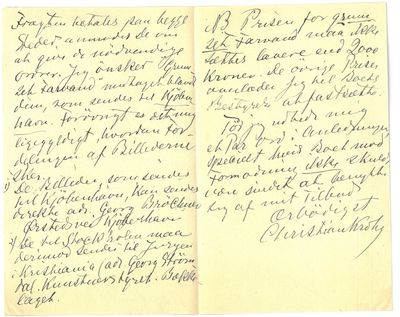 Fragten betales paa begge
Steder, anmodes De om
at give de nødvendige
ordrer. Jeg ønsker "Grim-
set Farvand" modtaget bland
dem, som sendes til Kjøben-
havn. Forøvrigt er det mig
ligegyldigt, hvordan For-
delingen af Billederne
sker.
1) De Billeder, som sendes
til Kjøbenhavn, kan sendes
direkte adr. Georg Bröchner
Kjøbenhavn
2) De til Stockholm maa
derimod sendes til Juryen
i Kristiania (adr. Georg Strøm
dal, Kunstnerstyret. Bække
laget.
NB Prisen for Grim-
set Farvand maa ikke
sættes lavere end 2000
Kroner. De øvrige Priser
overlader jeg til
Bestyrer at fastsætte.
Tør jeg udbede mig
et Par Ord i Anledningen
specielt hvis De mod
Formodning ikke skulde
være sindet at benytte
Dig af mit Tilbud
Ærbødigst
Christian Krohg